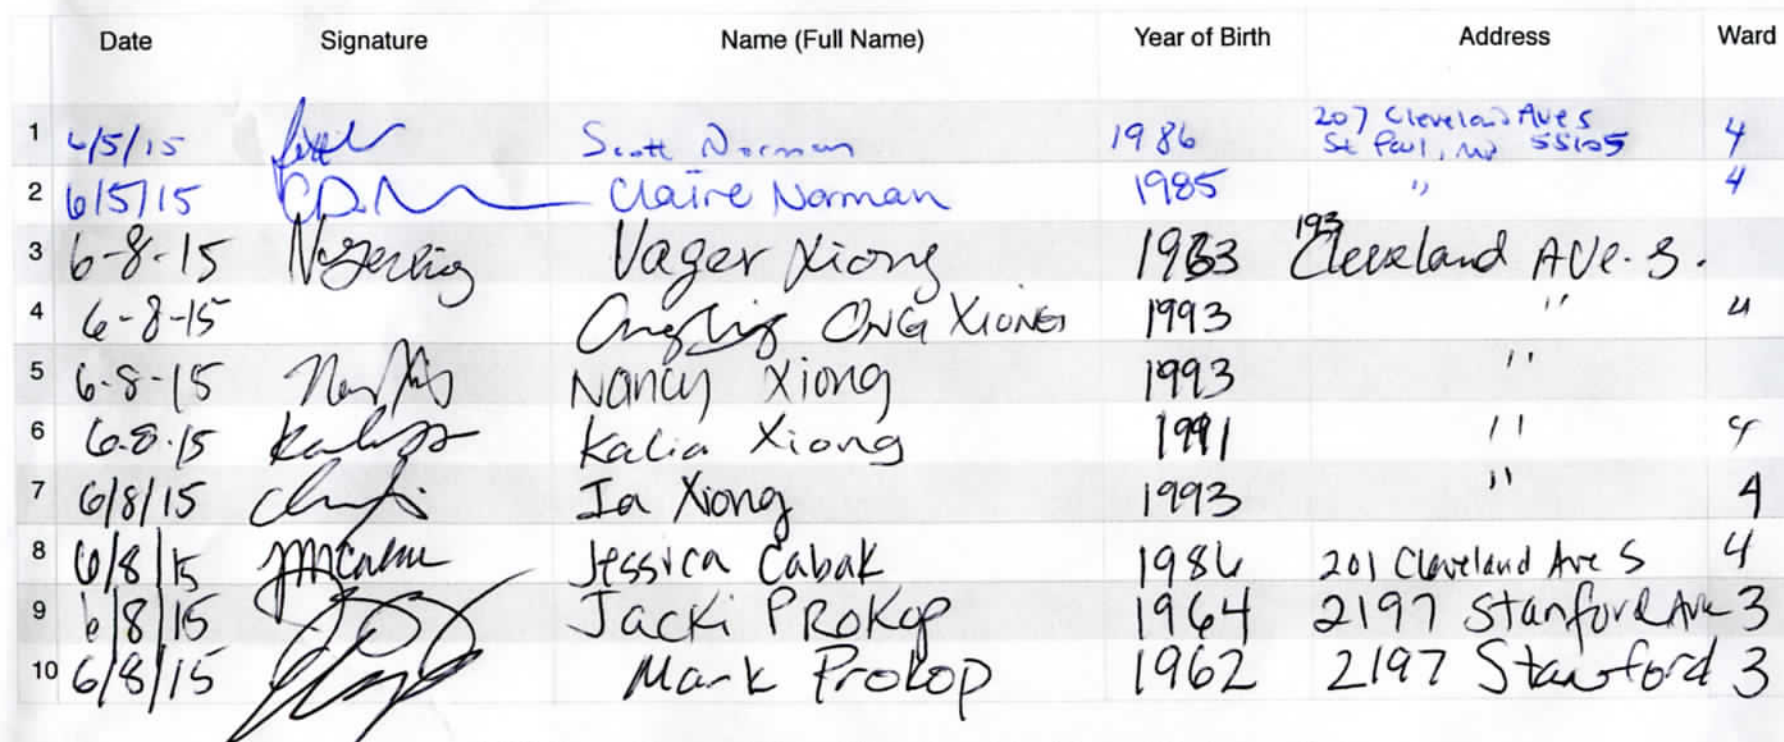 Date Signature Name (Full Name) Year of Birth Address Ward
1 6/5/15 Scott Norman 1986 207 Cleveland Ave S
St Paul, MN 55105 4
2 6/5/15 Claire Norman 1985 " 4
3 6-8-15 Vager Xiong 1983 193 Cleveland Ave. S.
4 6-8-15 ONG XIONG 1993 " 4
5 6-8-15 Nancy Xiong 1993 "
6 6.8.15 Kalia Xiong 1991 " 4
7 6/8/15 Ia Xiong 1993 " 4
8 6/8/15 Jessica Cabak 1986 201 Cleveland Ave S 4
9 6/8/15 Jacki Prokop 1964 2197 Stanford Ave 3
10 6/8/15 Mark Prokop 1962 2197 Stanford 3